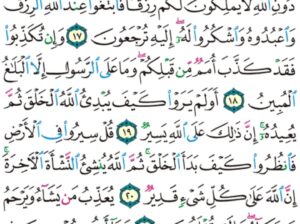 دُونِ اللَّهِ لَا يَمْلِكُونَ لَكُمْ رِزْقًا فَابْتَغُوا عِندَ اللَّهِ الرِّزْقَ
وَاعْبُدُوهُ وَاشْكُرُوا لَهُ إِلَيْهِ تُرْجَعُونَ ١٧ وَإِن تُكَذِّبُوا
فَقَدْ كَذَّبَ أُمَمٌ مِّن قَبْلِكُمْ وَمَا عَلَى الرَّسُولِ إِلَّا الْبَلَٰغُ
الْمُبِينُ ١٨ أَوَلَمْ يَرَوْا كَيْفَ يُبْدِئُ اللَّهُ الْخَلْقَ ثُمَّ
يُعِيدُهُ إِنَّ ذَٰلِكَ عَلَى اللَّهِ يَسِيرٌ ١٩ قُلْ سِيرُوا فِي الْأَرْضِ
فَانظُرُوا كَيْفَ بَدَأَ الْخَلْقَ ثُمَّ اللَّهُ يُنشِئُ النَّشْأَةَ الْآخِرَةَ
إِنَّ اللَّهَ عَلَىٰ كُلِّ شَيْءٍ قَدِيرٌ ٢٠ يُعَذِّبُ مَن يَشَاءُ وَيَرْحَمُ